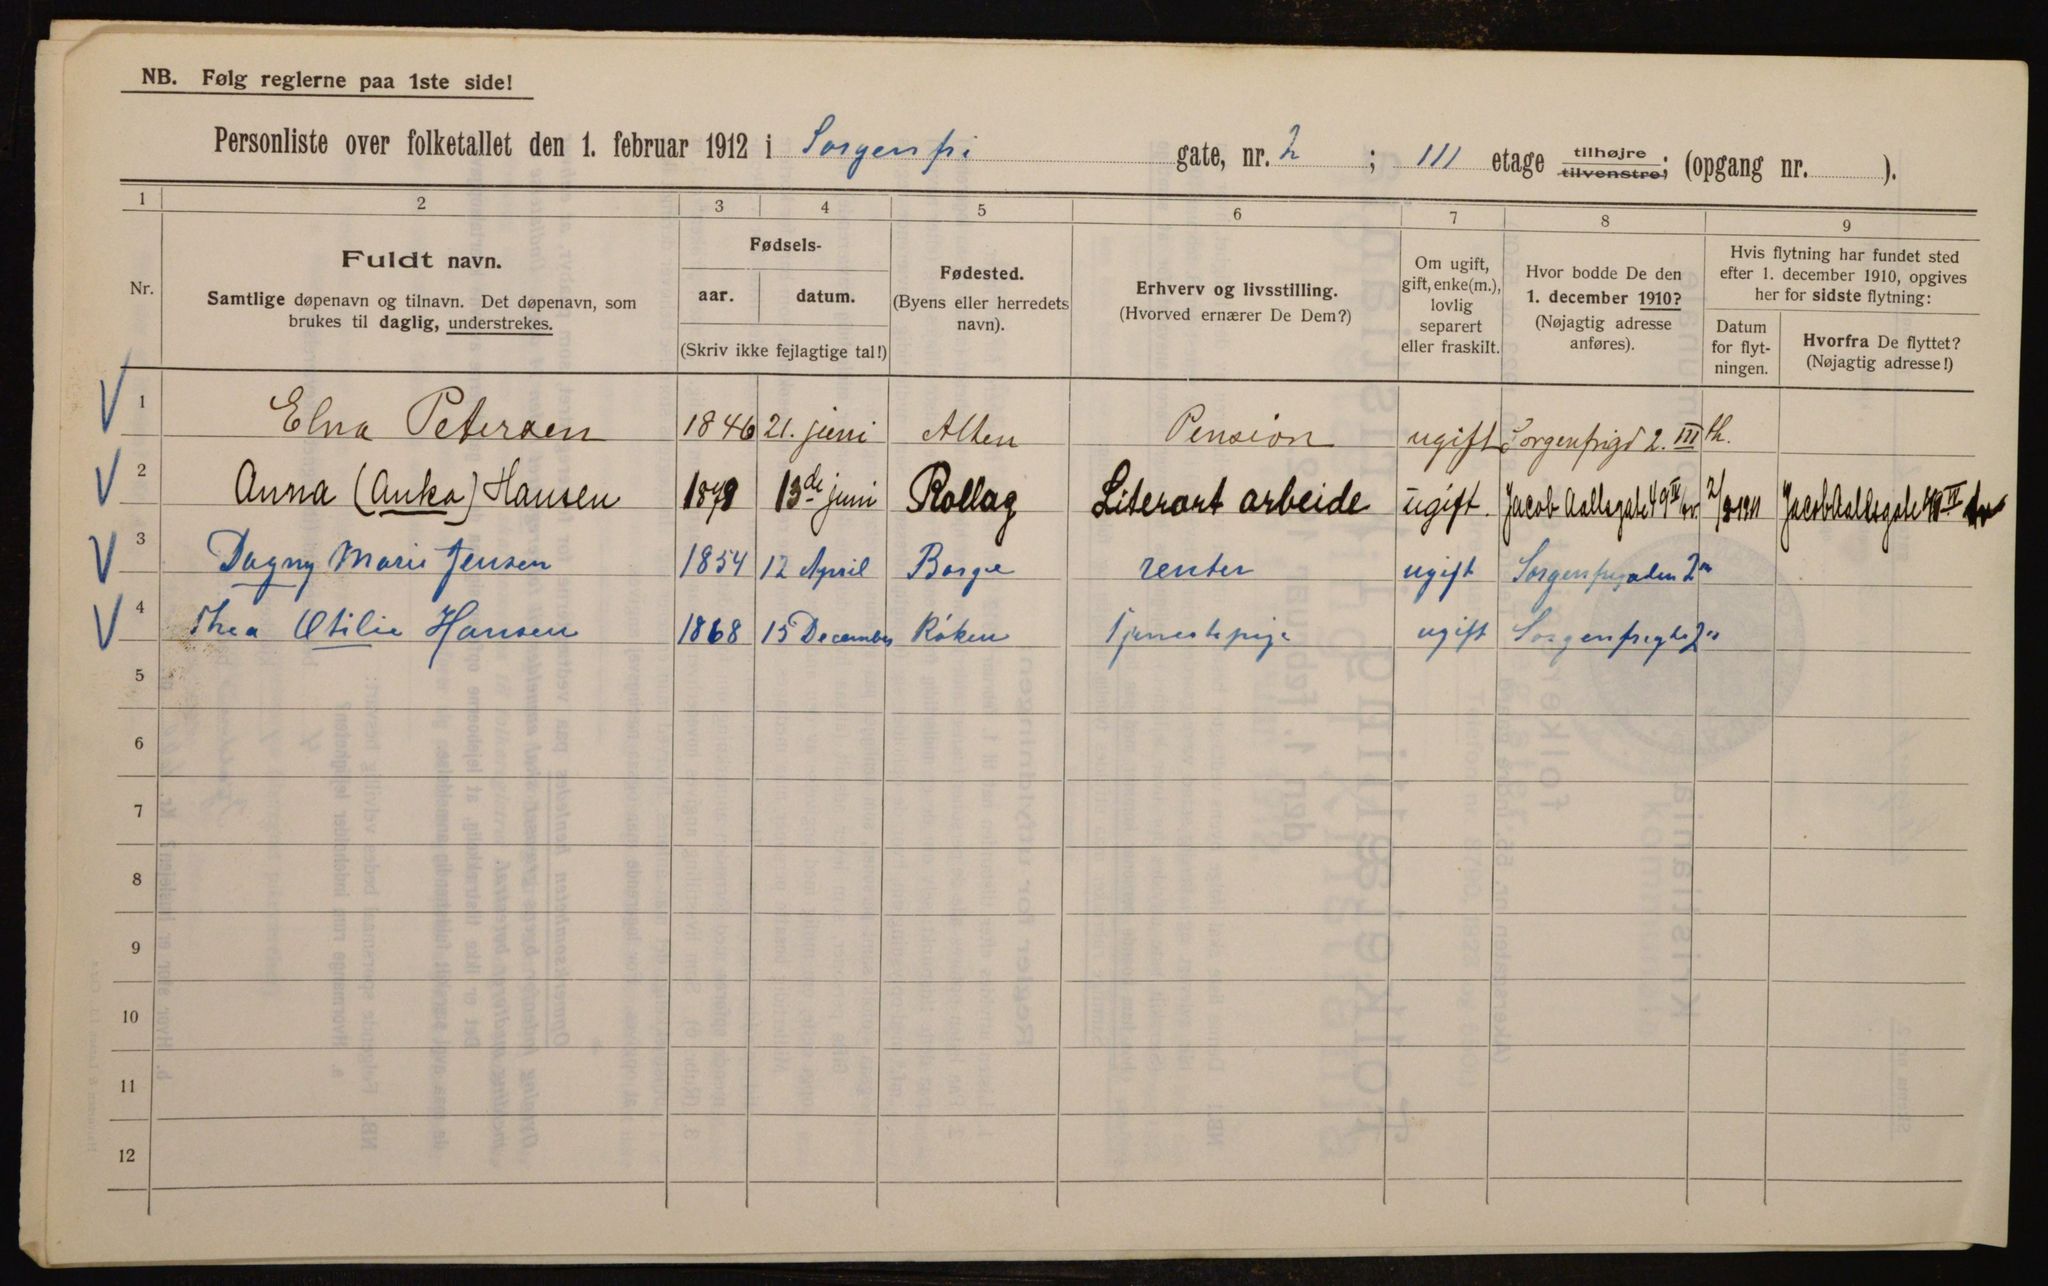 NB. Følg reglerne paa 1ste side!
Personliste over folketallet den 1. februar 1912 i Sorgenfri gate, nr. 2 ; III etage tilhøjre tilvenstre; (opgang nr. ).
1 2 3 4 5 6 7 8 9
Nr.
Fuldt navn.
Samtlige døpenavn og tilnavn. Det døpenavn, som
brukes til daglig, understrekes.
Fødsels-
aar. datum.
(Skriv ikke fejlagtige tal!)
Fødested.
(Byens eller herredets
navn).
Erhverv og livsstilling.
(Hvorved ernærer De Dem?)
Om ugift,
gift, enke(m.),
lovlig
separert
eller fraskilt.
Hvor bodde De den
1. december 1910?
(Nøjagtig adresse
anføres).
Hvis flytning har fundet sted
efter 1. december 1910, opgives
her for sidste flytning:
Datum
for flyt-
ningen.
Hvorfra De flyttet?
(Nøjagtig adresse!)
1 Elna Petersen 1846 21. juni Alten Pension ugift Sorgenfrigd 2. III th.
2 Anna (Anka) Hansen 13de juni Rollag Literart arbeide ugift. Jacob Aallsgate 49 IV 1911 Jacob Aallsgate 49 IV
3 Dagny Marie Jensen 1854 12 April Borge renter ugift Sorgenfrigaden 2
4 Thea Otilie Hansen 1868 15 December Røken Tjenestepige ugift Sorgenfrigt 2
5
6
7
8
9
10
11
12